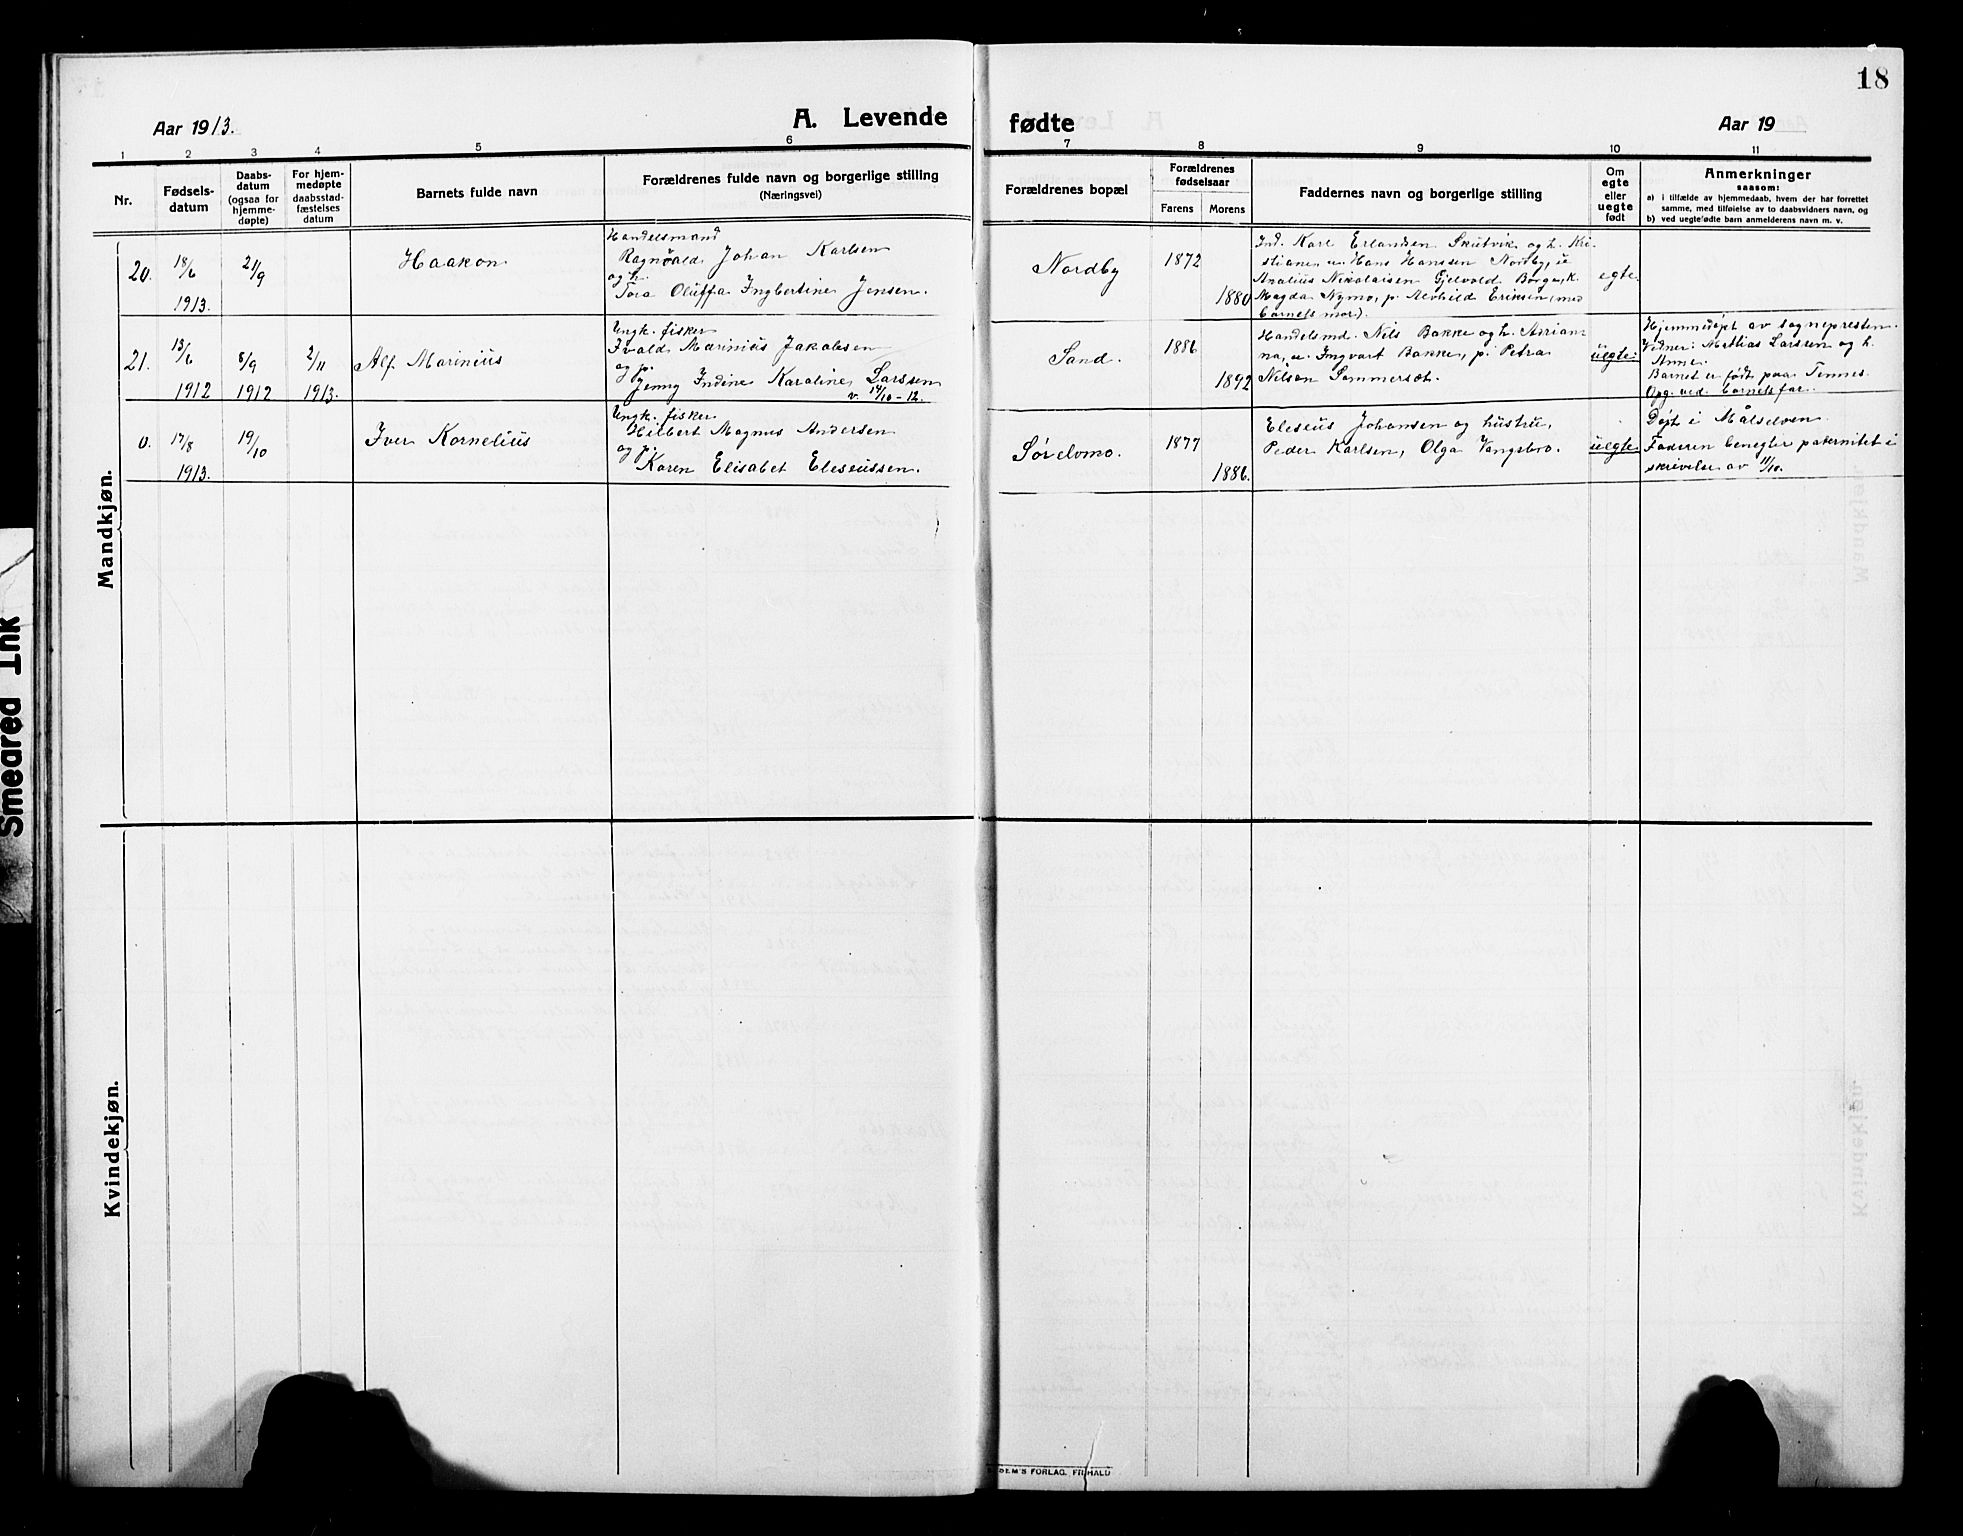 18
Aar 1913.
A. Levende
fødte
Aar 19
1 2 3 4 5 6 7 8 9 10 11
Nr.
Fødsels-
datum
Daabs-
datum
(ogsaa for
hjemme-
døpte)
For hjem-
medøpte
daabsstad-
fæstelses
datum
Barnets fulde navn
Forældrenes fulde navn og borgerlige stilling
(Næringsvei)
Forældrenes bopæl
Forældrenes
fødselsaar
Farens Morens
Faddernes navn og borgerlige stilling
Om
egte
eller
uegte
født
Anmerkninger
saasom:
a) i tilfælde av hjemmedaab, hvem der har forrettet
samme, med tilføielse av to daabsvidners navn, og
b) ved uegtefødte barn anmelderens navn m. v.
Mandkjøn.
20.
18/6
1913.
21/9
Haakon
Handelsmand
Ragnvald Johan Karlsen
og h.
Tora Oluffa Ingbertine Jensen.
Nordby
1872
1880
Ind. Karl Erlandsen Skutvik og h. Kri-
stiane, u. Hans Hanssen Nordby, u
Analius Nikolaisen Gjelvold Borge, k.
Magda Nymo, p. Alvhild Eriksen, (med
barnets mor).
egte
21.
13/6
1912
8/9
1912
2/11
1913.
Alf Marinius
Ungk. fisker
Ivald Marinius Jakobsen
og p.
Jenny Indine Karoline Larssen
v. 14/10-12.
Sand.
1886
1892
Handelsmd. Nils Bakke og h. Arrian-
na, u. Ingvart Bakke, p. Petra
Nilsen Sommerset.
uegte:
Hjemmedøpt av sognepresten.
Vidner: Mathias Larsen og h.
Anne.
Barnet er født paa Tennes.
Opg. ved barnets far.
0.
17/8
1913.
19/10
Iver Kornelius
Ungk. fisker
Hilbert Magnus Andersen
og p.
Karen Elisabet Eleseussen.
Sørelvmo.
1877
1886.
Eleseus Johansen og hustru,
Peder Karlsen, Olga Vangsbro.
uegte
Døpt i Målselven.
Faderen benegter paternitet i
skrivelse av 11/10.
Kvindekjøn.
SEM'S FORLAG, FR.HALD
Smeared Ink